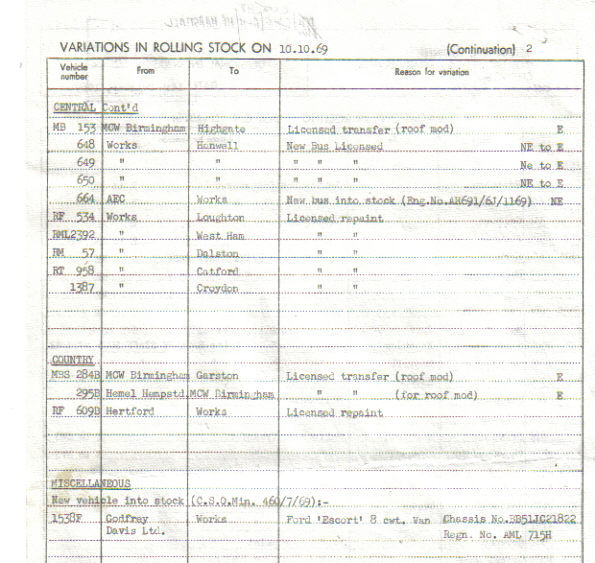 VARIATIONS IN ROLLING STOCK ON 10.10.69 (Continuation) 2
Vehicle number From To Reason for variation
CENTRAL Cont'd
MB 153 MCW Birmingham Highgate Licensed transfer (roof mod) E
648 Works Hanwell New Bus Licensed NE to E
649 " " " " " Ne to E
650 " " " " " NE to E
664 AEC Works New bus into stock (Eng.No.AH691/6J/1169) NE
RF 534 Works Loughton Licensed repaint
RML2392 " West Ham " "
RM 57 " Dalston " "
RT 958 " Catford " "
1387 " Croydon " "
COUNTRY
MBS 284B MCW Birmingham Garston Licensed transfer (roof mod) E
295B Hemel Hempstd. MCW Birmingham " " (for roof mod) E
RF 609B Hertford Works Licensed repaint
MISCELLANEOUS
New vehicle into stock (C.S.O.Min. 460/7/69):-
1538F Godfrey Works Ford 'Escort' 8 cwt. Van Chassis No.BB51JC21822
Davis Ltd. Regn. No. AML 715H